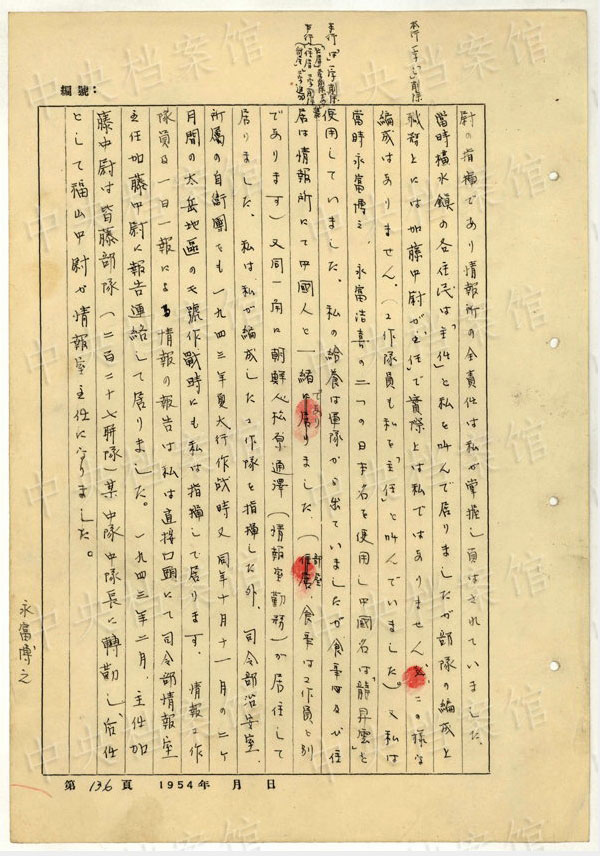 本行一字「シ」削除
本行「は」一字削除
本行「住居」二字削除
「部屋」二字追加
編號：
尉の指揮であり情報所の全責任は私が掌握し負はされていました。
當時橫水鎮の各住民は「主任」と私を叫んで居りましたが部隊の編成と
職務上には加藤中尉が「主任」で實際上は私ではありません。この様な
編成はありません。（工作隊員も私を「主任」と叫んでいました）。又私は
當時永富博之、永富浩喜の二つの日本名を使用し中國名は「龍昇雲」を
使用していました。私の給養は軍隊から出ていましたが食事及び住
居は情報所にて中國人と一緒であり居りました。（部屋住居、食事は工作員と別
であります）又同一角に朝鮮人松原通澤（情報室勤務）が居住して
居りました。私は私が編成した工作隊を指揮した外、司令部治安室
所屬の自衛團でも一九四三年夏太行作戰時又同年十月十一月の二ヶ
月間の太岳地區のセ號作戰時にも私は指揮して居ります。情報工作
隊員の一日一報による情報の報告は私は直接口頭にて司令部情報室
主任加藤中尉に報告連絡して居りました。一九四三年二月、主任加
藤中尉は皆藤部隊（二百二十七聯隊）某中隊中隊長に轉勤し、後任
として福山中尉が情報室主任になりました。
永富博之
第 136 頁 1954年 月 日
中央档案馆